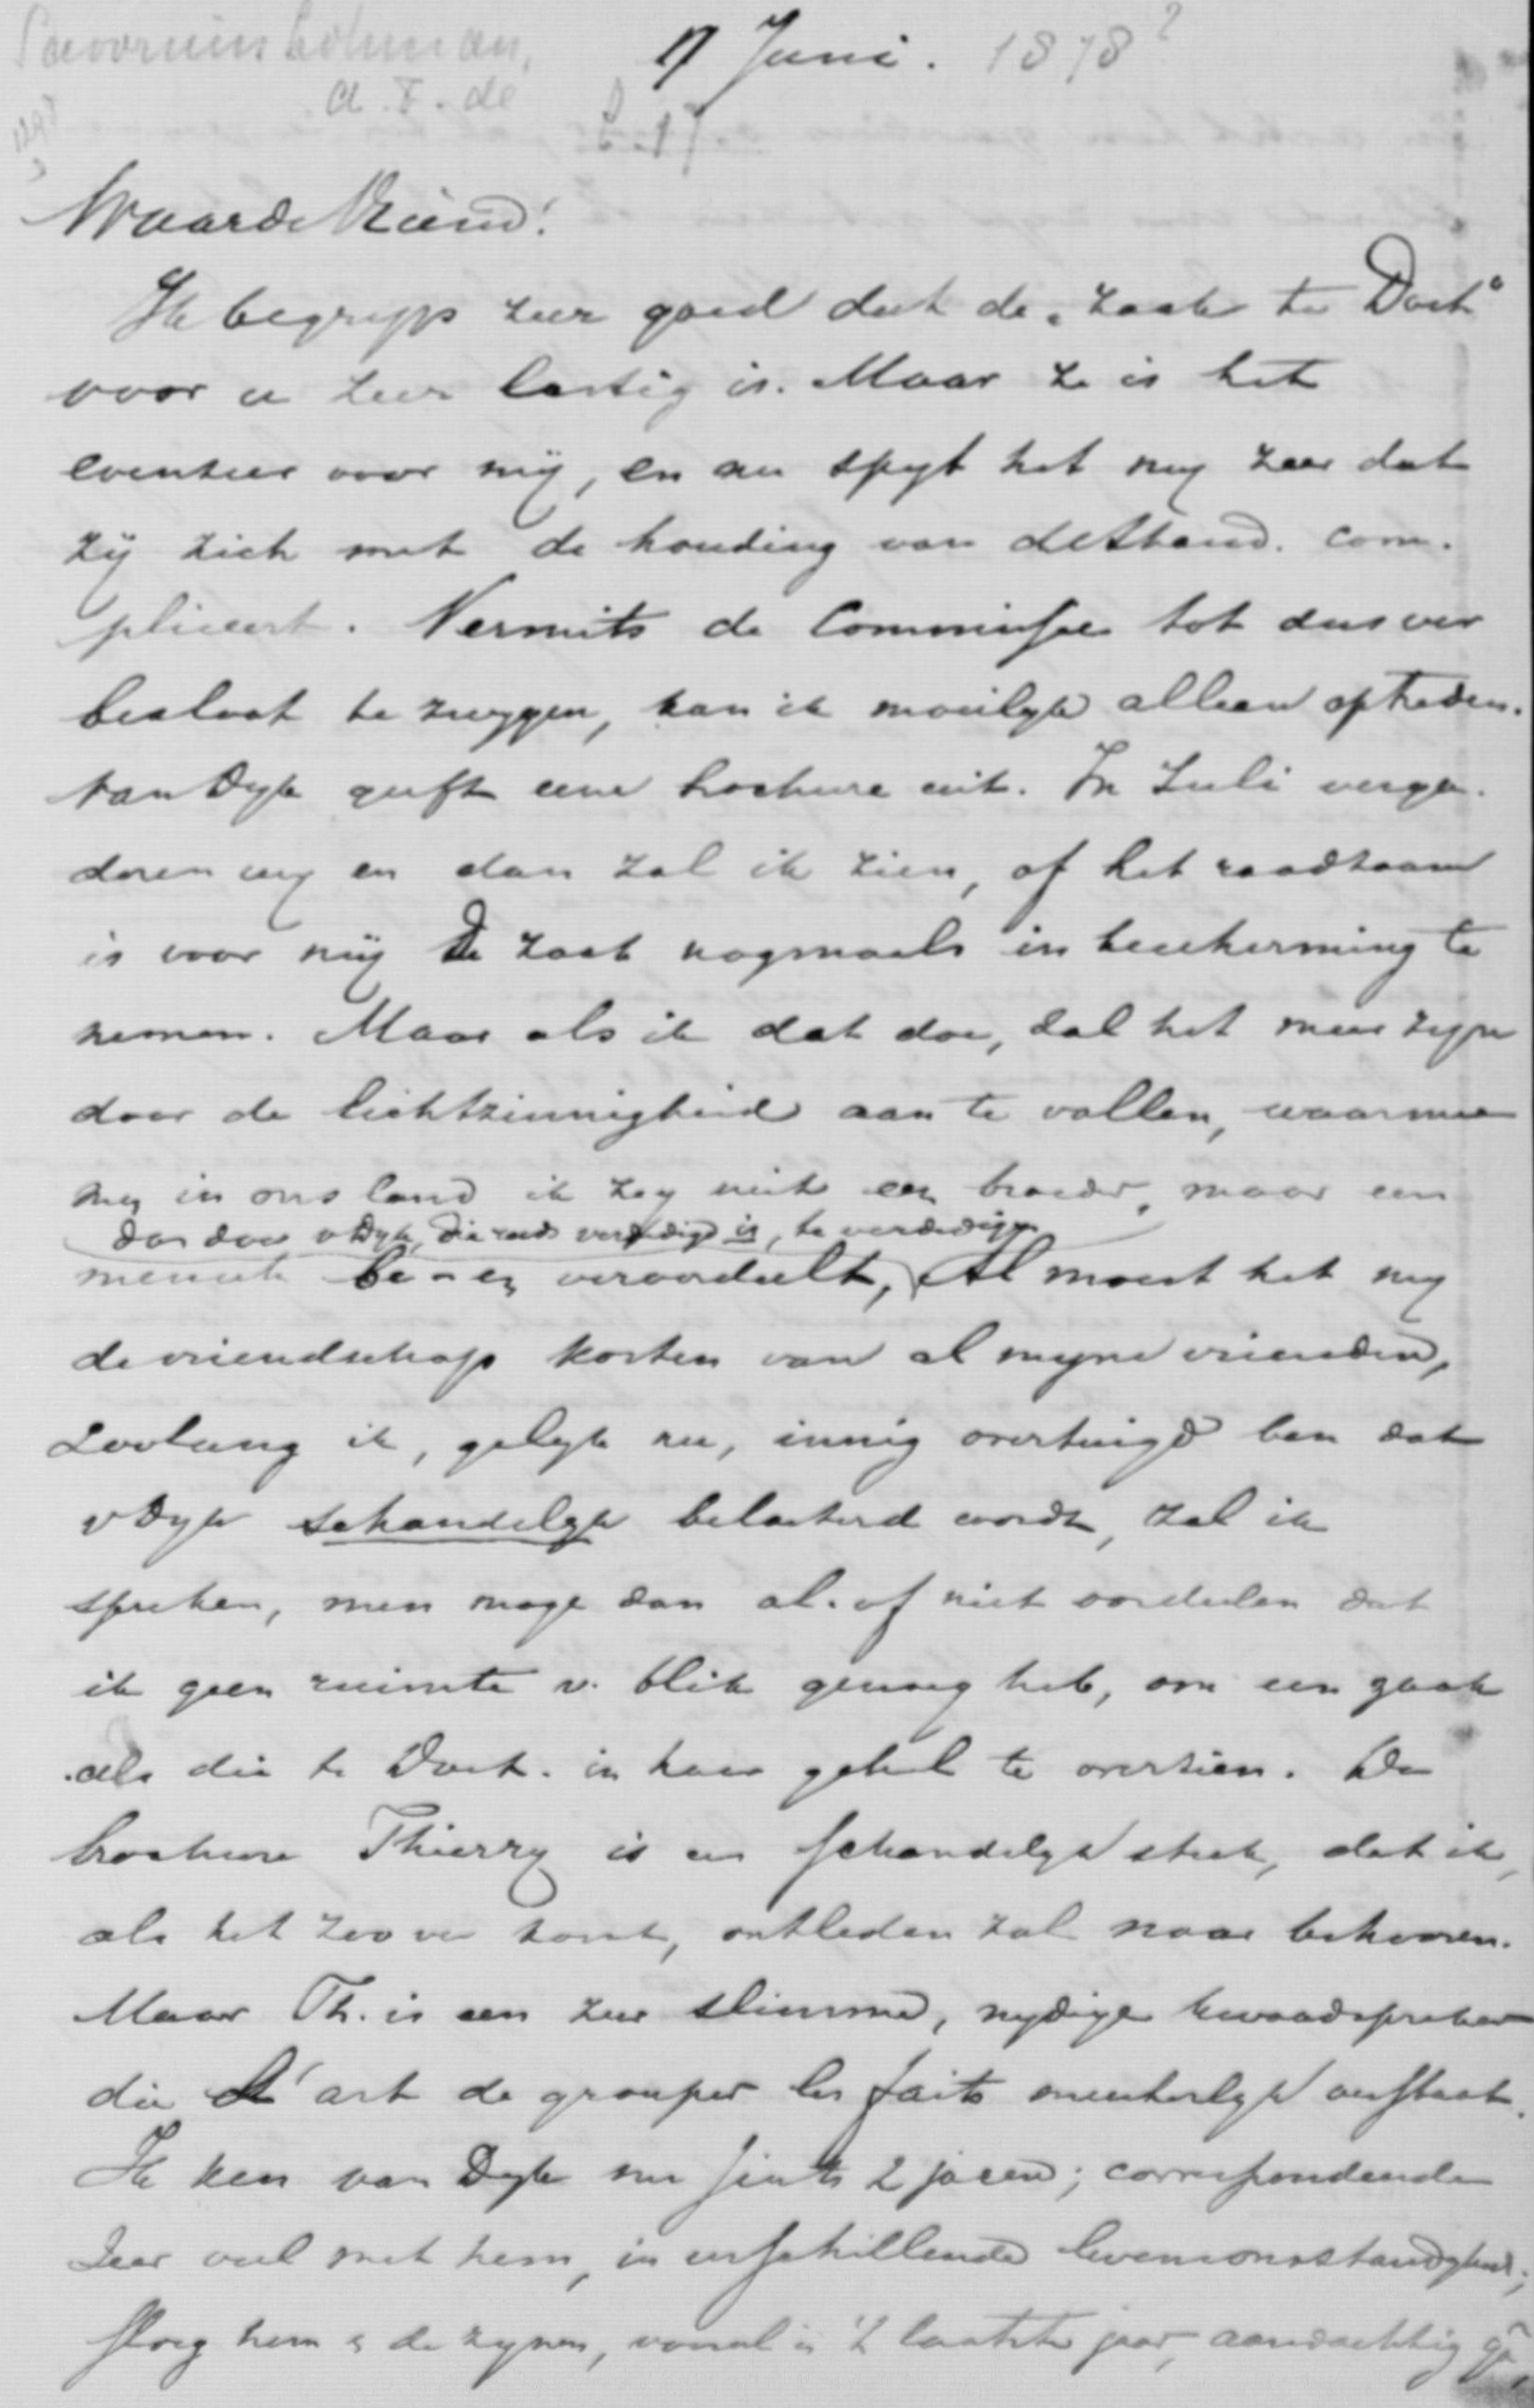 Savornin Lohman,
17 Juni. 1878?
A. F. de
Waarde Vriend!
Ik begryp zeer goed dat de „zaak te Doet"
voor u zeer lastig is. Maar ze is het
evenzeer voor mij, en nu spyt het my zeer dat
zij zich met de houding van de Stand. com-
pliceert. Vermits de Commissie tot dusver
besloot te zwygen, kan ik moeilyk alleen optreden.
Van Dyk geeft eene brochure uit. In Juli verga-
deren wy en dan zal ik zien, of het raadzaam
is voor mij de zaak nogmaals in bescherming te
nemen. Maar als ik dat doe, zal het meer zyn
door de lichtzinnigheid aan te vallen, waarmee
men in ons land ik zeg niet een broeder, maar een
dan door v Dyk, die reeds verdedigd is, te verdedigen
mensch be- en veroordeelt, Al moest het my
de vriendschap kosten van al myne vrienden,
zoolang ik, gelyk nu, innig overtuigd ben dat
v Dyk schandelyk belasterd wordt, zal ik
spreken, men moge dan al of niet oordeelen dat
ik geen ruimte v. blik genoeg heb, om een zaak
als die te Doet. in haar geheel te overzien. De
brochure Thierry is een schandelyk stuk, dat ik,
als het zoo ver komt, ontleden zal naar behooren.
Maar Th. is een zeer slimme, nydige kwaadspreker
die l'art de grouper les faits meesterlyk verstaat.
Ik ken van Dyk nu sints 2 jaren; correspondeerde
zeer veel met hem, in verschillende levensomstandighed.;
sloeg hem & de zynen, vooral in 't laatste jaar, aandachtig ga,